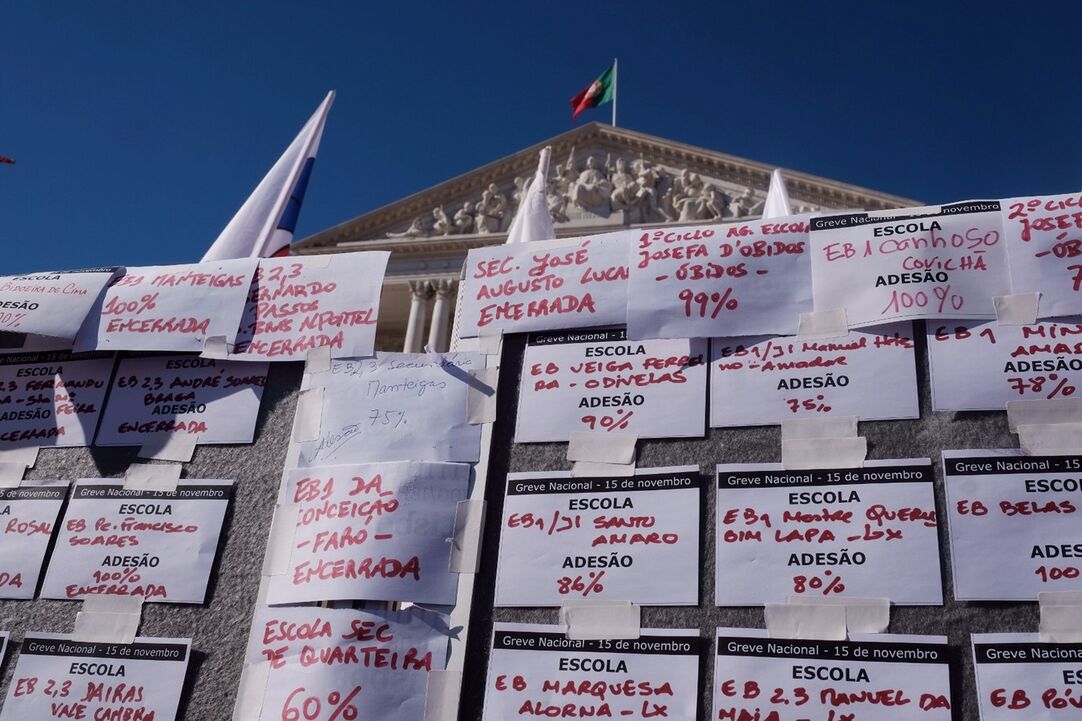 ESCOLA
BIDOEIRA DE CIMA
ADESÃO
EB 2,3 MANTEIGAS
100%
ENCERRADA
2,3
PASSOS
ENCERRADA
SEC. JOSÉ
AUGUSTO LUCAS
ENCERRADA
1º CICLO AG. ESCOLA
JOSEFA D'ÓBIDOS
- ÓBIDOS -
99%
Greve Nacional - 15 de novembro
ESCOLA
EB1 Canhoso
COVILHÃ
ADESÃO
100%
2º CICLO
JOSEFA
- ÓB
ESCOLA
2,3 FERNANDO
ADESÃO
ENCERRADA
ESCOLA
EB 2,3 ANDRÉ SOARES
BRAGA
ADESÃO
ENCERRADA
EB 2,3 Secundária
Manteigas
75%
Adesão
Greve Nacional - 15 de novembro
ESCOLA
EB VEIGA FERREI
RA - ODIVELAS
ADESÃO
90%
ESCOLA
EB1/JI Manuel
ADESÃO
75%
EB1
AMAR
ADESÃO
78%
15 de novembro
ESCOLA
ROSAL
ADESÃO
Greve Nacional - 15 de novembro
ESCOLA
EB Pe. Francisco
SOARES
ADESÃO
100%
ENCERRADA
EB1 DA
CONCEIÇÃO
- FARO -
ENCERRADA
Greve Nacional - 15 de novembro
ESCOLA
EB1/JI SANTO
AMARO
ADESÃO
86%
Greve Nacional - 15 de novembro
ESCOLA
EB1 Mestre QUERU
BIM LAPA - LX
ADESÃO
80%
Greve Nacional - 15
ESCO
EB BELAS
ADES
100
Greve Nacional - 15 de novembro
ESCOLA
EB 2,3 DAIRAS
VALE CAMBRA
ESCOLA SEC
DE QUARTEIRA
60%
Greve Nacional - 15 de novembro
ESCOLA
EB MARQUESA
ALORNA - LX
Greve Nacional - 15 de novembro
ESCOLA
EB 2,3 MANUEL DA
MAIA - LX
Greve Nacional - 15 de
ESC
EB PÓV